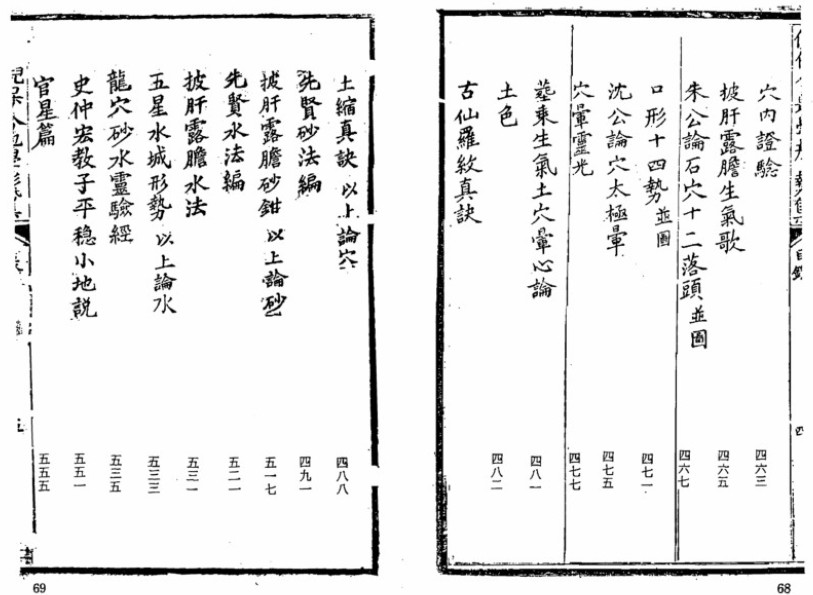 目錄
四
穴內證驗 四六三
披肝露膽生氣歌 四六五
朱公論石穴十二落頭並圖 四六七
口形十四勢並圖 四七一
沈公論穴太極暈 四七五
穴暈靈光 四七七
葬乘生氣土穴暈心論 四八一
土色 四八二
古仙羅紋真訣
68
土縮真訣 以上論穴 四八八
先賢砂法編 四九一
披肝露膽砂鉗 以上論砂 五一七
先賢水法編 五二一
披肝露膽水法 五三一
五星水城形勢 以上論水 五三三
龍穴砂水靈驗經 五三五
史仲宏教子平穩小地說 五五一
官星篇 五五五
69